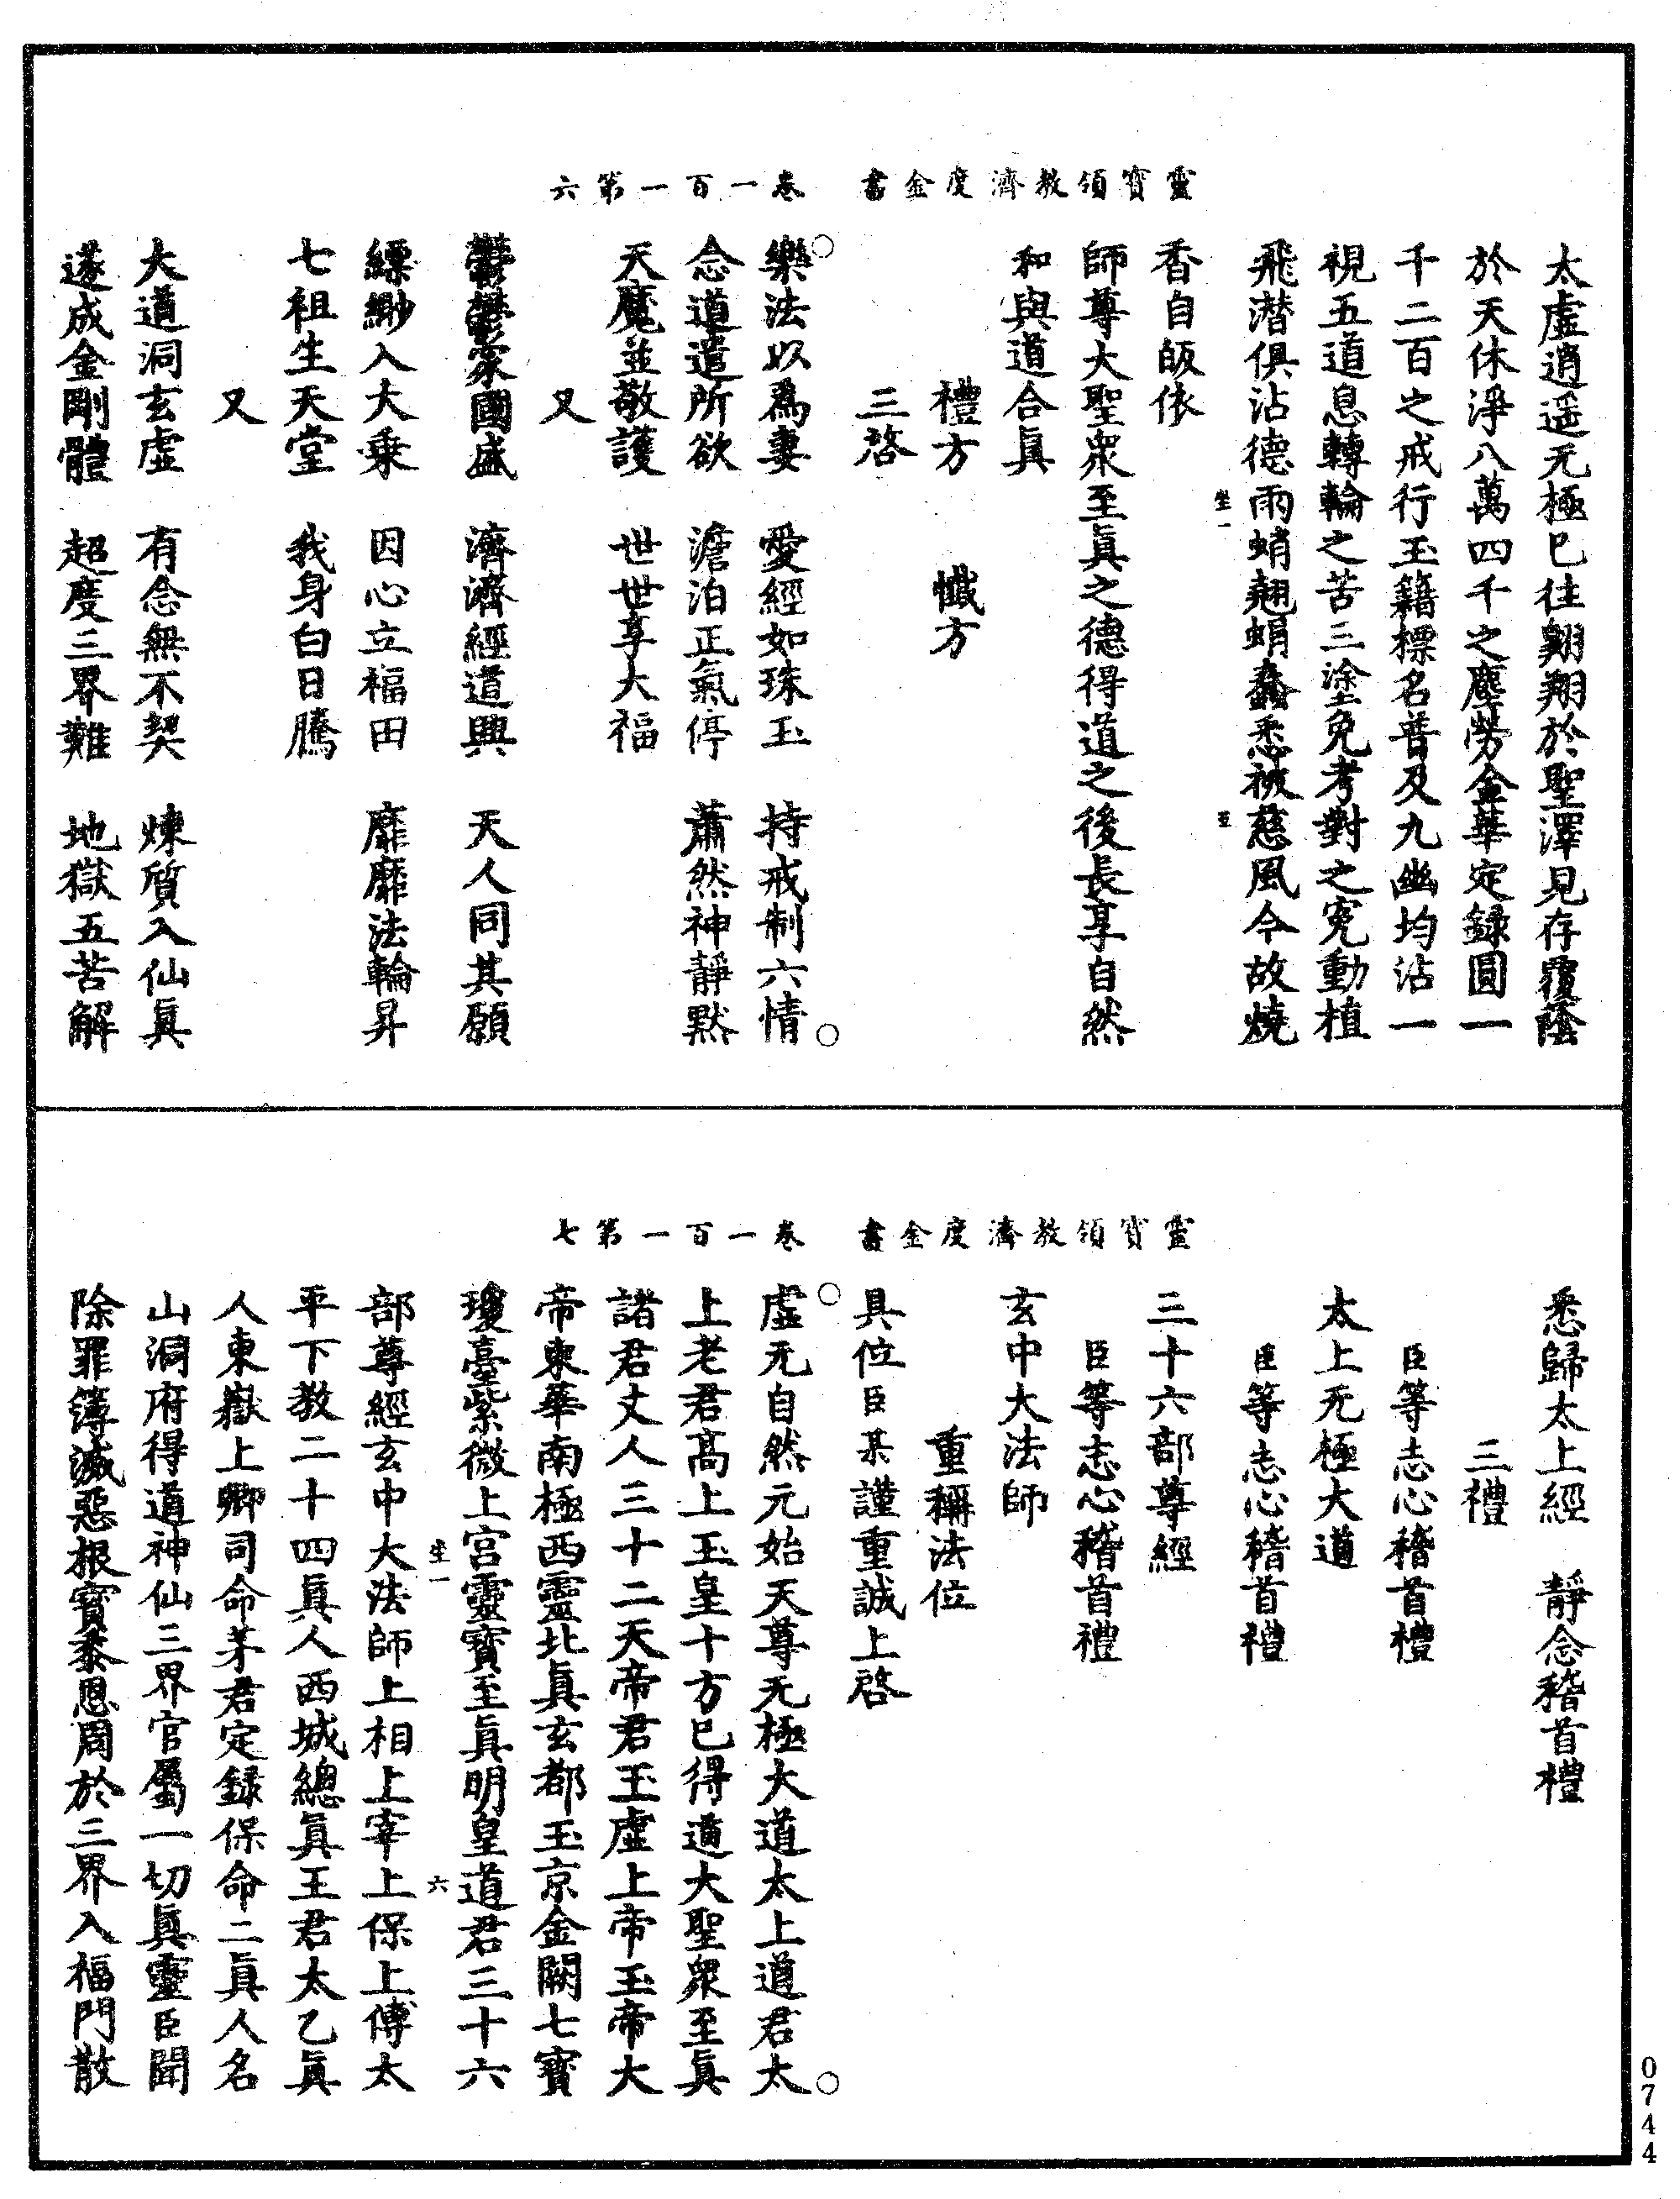 太虛逍遥无極巳往翺翔於聖澤見存覆蔭
於天休淨八萬四千之塵勞金華定録圓一
千二百之戒行玉籍標名普及九幽均沾一
視五道息轉輪之苦三塗免考對之寃動植
飛潜俱沾德雨蛸翹蜎蠢悉被慈風今故燒
坐一
五
香自皈依
師尊大聖衆至眞之德得道之後長享自然
和與道合眞
禮方　懺方
三啓
靈寶領教濟度金書　卷一百一第六
樂法以爲妻　愛經如珠玉　持戒制六情
念道遣所欲　澹泊正氣停　蕭然神靜默
天魔並敬護　世世享大福
又
鬱鬱家國盛　濟濟經道興　天人同其願
縹緲入大乗　因心立福田　靡靡法輪昇
七祖生天堂　我身白日騰
又
大道洞玄虛　有念無不契　煉質入仙眞
遂成金剛體　超度三界難　地獄五苦解
悉歸太上經　靜念稽首禮
三禮
臣等志心稽首禮
太上无極大道
臣等志心稽首禮
三十六部尊經
臣等志心稽首禮
玄中大法師
重稱法位
具位臣某謹重誠上啓
靈寶領教濟度金書　卷一百一第七
虛无自然元始天尊无極大道太上道君太
上老君高上玉皇十方巳得道大聖衆至眞
諸君丈人三十二天帝君玉虛上帝玉帝大
帝東華南極西靈北眞玄都玉京金闕七寶
瓊臺紫微上宫靈寶至眞明皇道君三十六
坐一
六
部尊經玄中大法師上相上宰上保上傅太
平下教二十四眞人西城總眞王君太乙眞
人東嶽上卿司命茅君定録保命二眞人名
山洞府得道神仙三界官屬一切眞靈臣聞
除罪簿滅惡根寶黍恩周於三界入福門散
0744